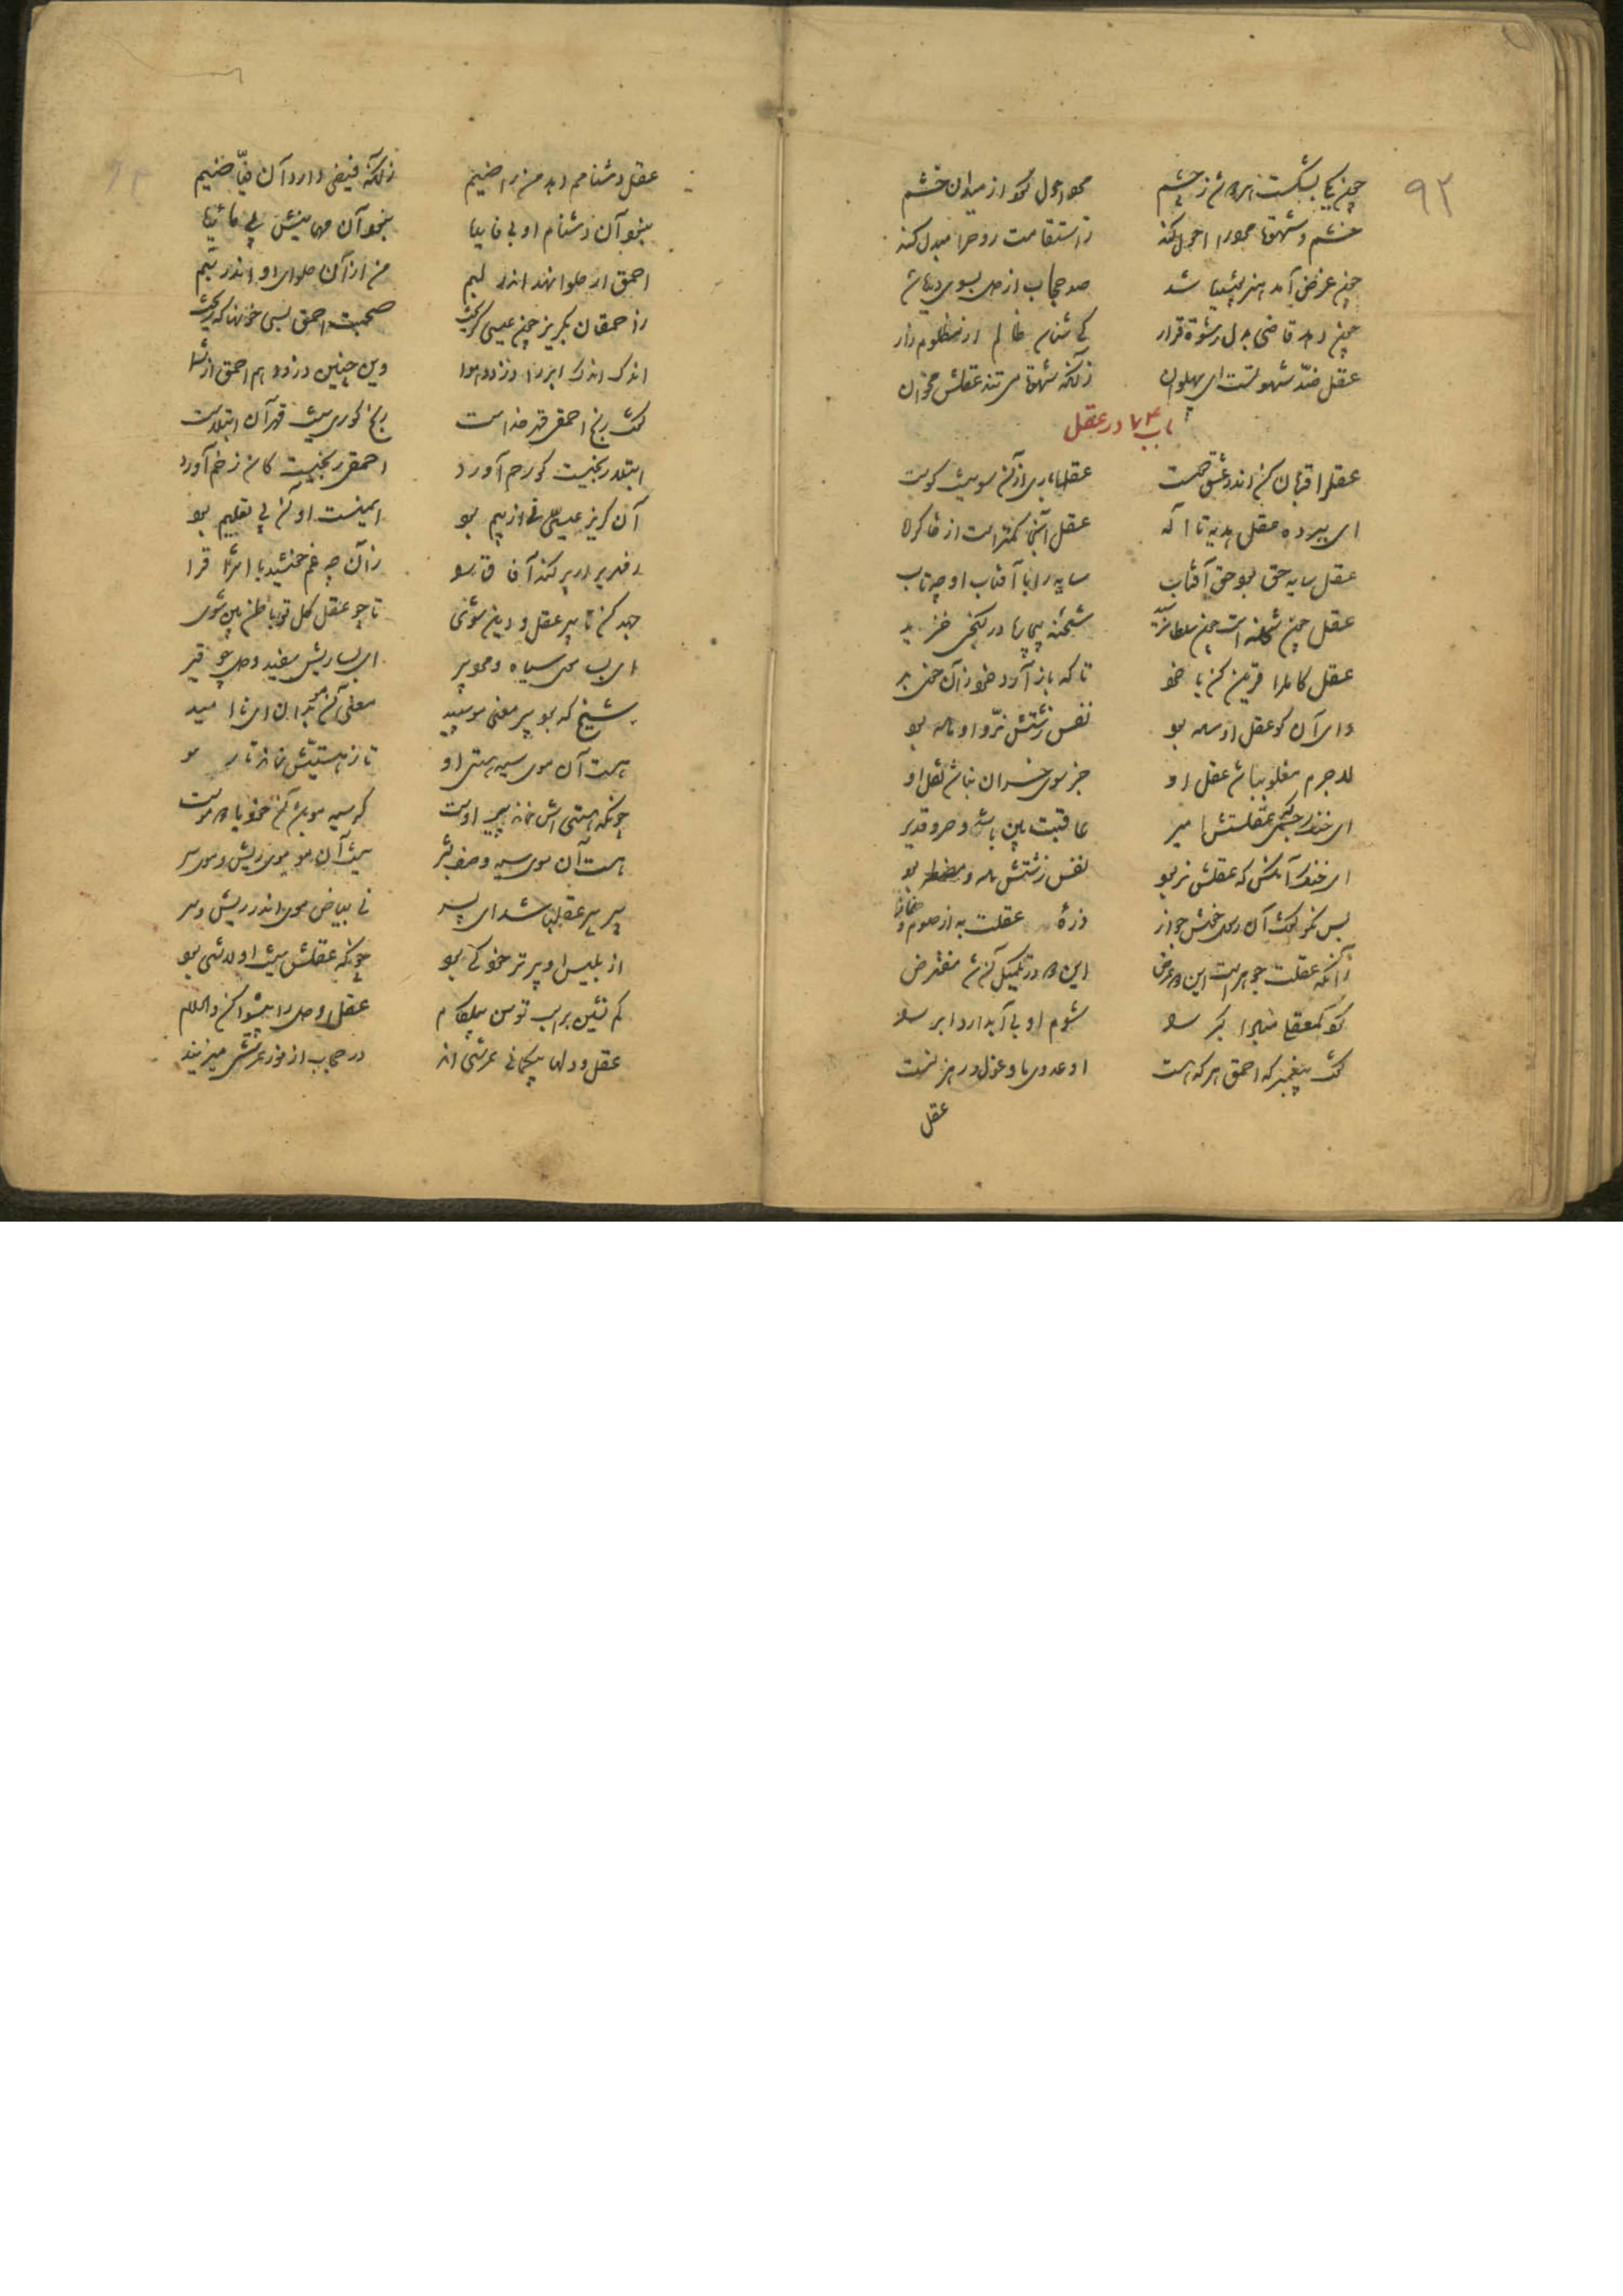 ۹۳
چون یکی بشکست هر دو شد ز چشم محو احول گوا از میلان خشم
خشم و شهوة مرد را احول کند ز استقامت روح را مبدل کند
چون غرض آمد هنر پوشیده شد صد حجاب از دل بسوی دیده شد
چون دهد قاضی بدل رشوة قرار کی شناسد ظالم از مظلوم زار
عقل ضد شهوتست ای پهلوان زانکه شهوة می تند عقلش مخوان
باب ۷۴ در عقل
عقل را قربان کن اندر عشق دوست عقلها باری از آن سویست کوست
ای ببرده عقل هدیه تا اله عقل آنجا کمتر است از خاک راه
عقل سایه حق بود حق آفتاب سایه را با آفتاب او چه تاب
عقل چون شحنه است چون سلطان رسید شحنه بیچاره در کنجی خزید
عقل کامل را قرین کن با خرد تا که باز آرد خرد زان خوی بد
وای آن کو عقل او ماده بود نفس زشتش نر و آماده بود
لاجرم مغلوب باشد عقل او جز سوی خسران نباشد نقل او
ای خنک چشمی که عقلستش امیر عاقبت بین باشد و حبر و قدیر
ای خنک آنکس که عقلش نر بود نفس زشتش ماده و مضطر بود
بس نکو گفت آن رسول خوش جواز ذرهٔ عقلت به از صوم و نماز
زانکه عقلت جوهر است این دو عرض این دو در تکمیل آن شد مفترض
شوم او بی آبدارد ابر را
گفت پیغمبر که احمق هر که هست او عدوی ما و غول رهزنست
عقل
عقل دشنامم دهد من راضیم زانکه فیضی دارد آن فیاضیم
نبود آن دشنام او بی فایده نبود آن مهمانیش بی مائده
احمق ار حلوا نهد اندر لبم من از آن حلوای او اندر تبم
ز احمقان بگریز چون عیسی گریخت صحبت احمق بسی خونها که ریخت
اندک اندک آب را دزدد هوا وین چنین دزدد هم احمق از شما
گفت رنج احمقی قهر خداست رنج کوری نیست قهر آن ابتلاست
ابتلا رنجیست کو رحم آورد احمقی رنجیست کان زخم آورد
آن گریز عیسی نی از بیم بود ایمنست او آن پی تعلیم بود
زمهریر ار پر کند آفاق را زان چه غم خورشید با اشراق را
جهد کن تا پیر عقل و دین شوی تا چو عقل کل تو باطن بین شوی
ای بسا ریش سیاه و مرد پیر ای بسا ریش سفید و دل چو قیر
شیخ که بود پیر یعنی مو سپید معنی آن مو بدان ای نا امید
هست آن موی سیه هستی او تا ز هستیش نماند تار مو
چونکه هستی اش نماند پیر اوست گر سیه مو باشد آن خود یا دو موست
هست آن موی سیه وصف بشر نیست آن مو موی ریش و موی سر
پیر پیر عقل باشد ای پسر نی بیاض موی اندر ریش و سر
از بلیس او پیرتر خود کی بود چونکه عقلش نیست او لاشی بود
کم نشین بر اسب توسن بی لگام عقل و دل را پیشوا کن والسلام
عقل و دلها بیگمانی عرشی اند در حجاب از نور عرشی میزیند